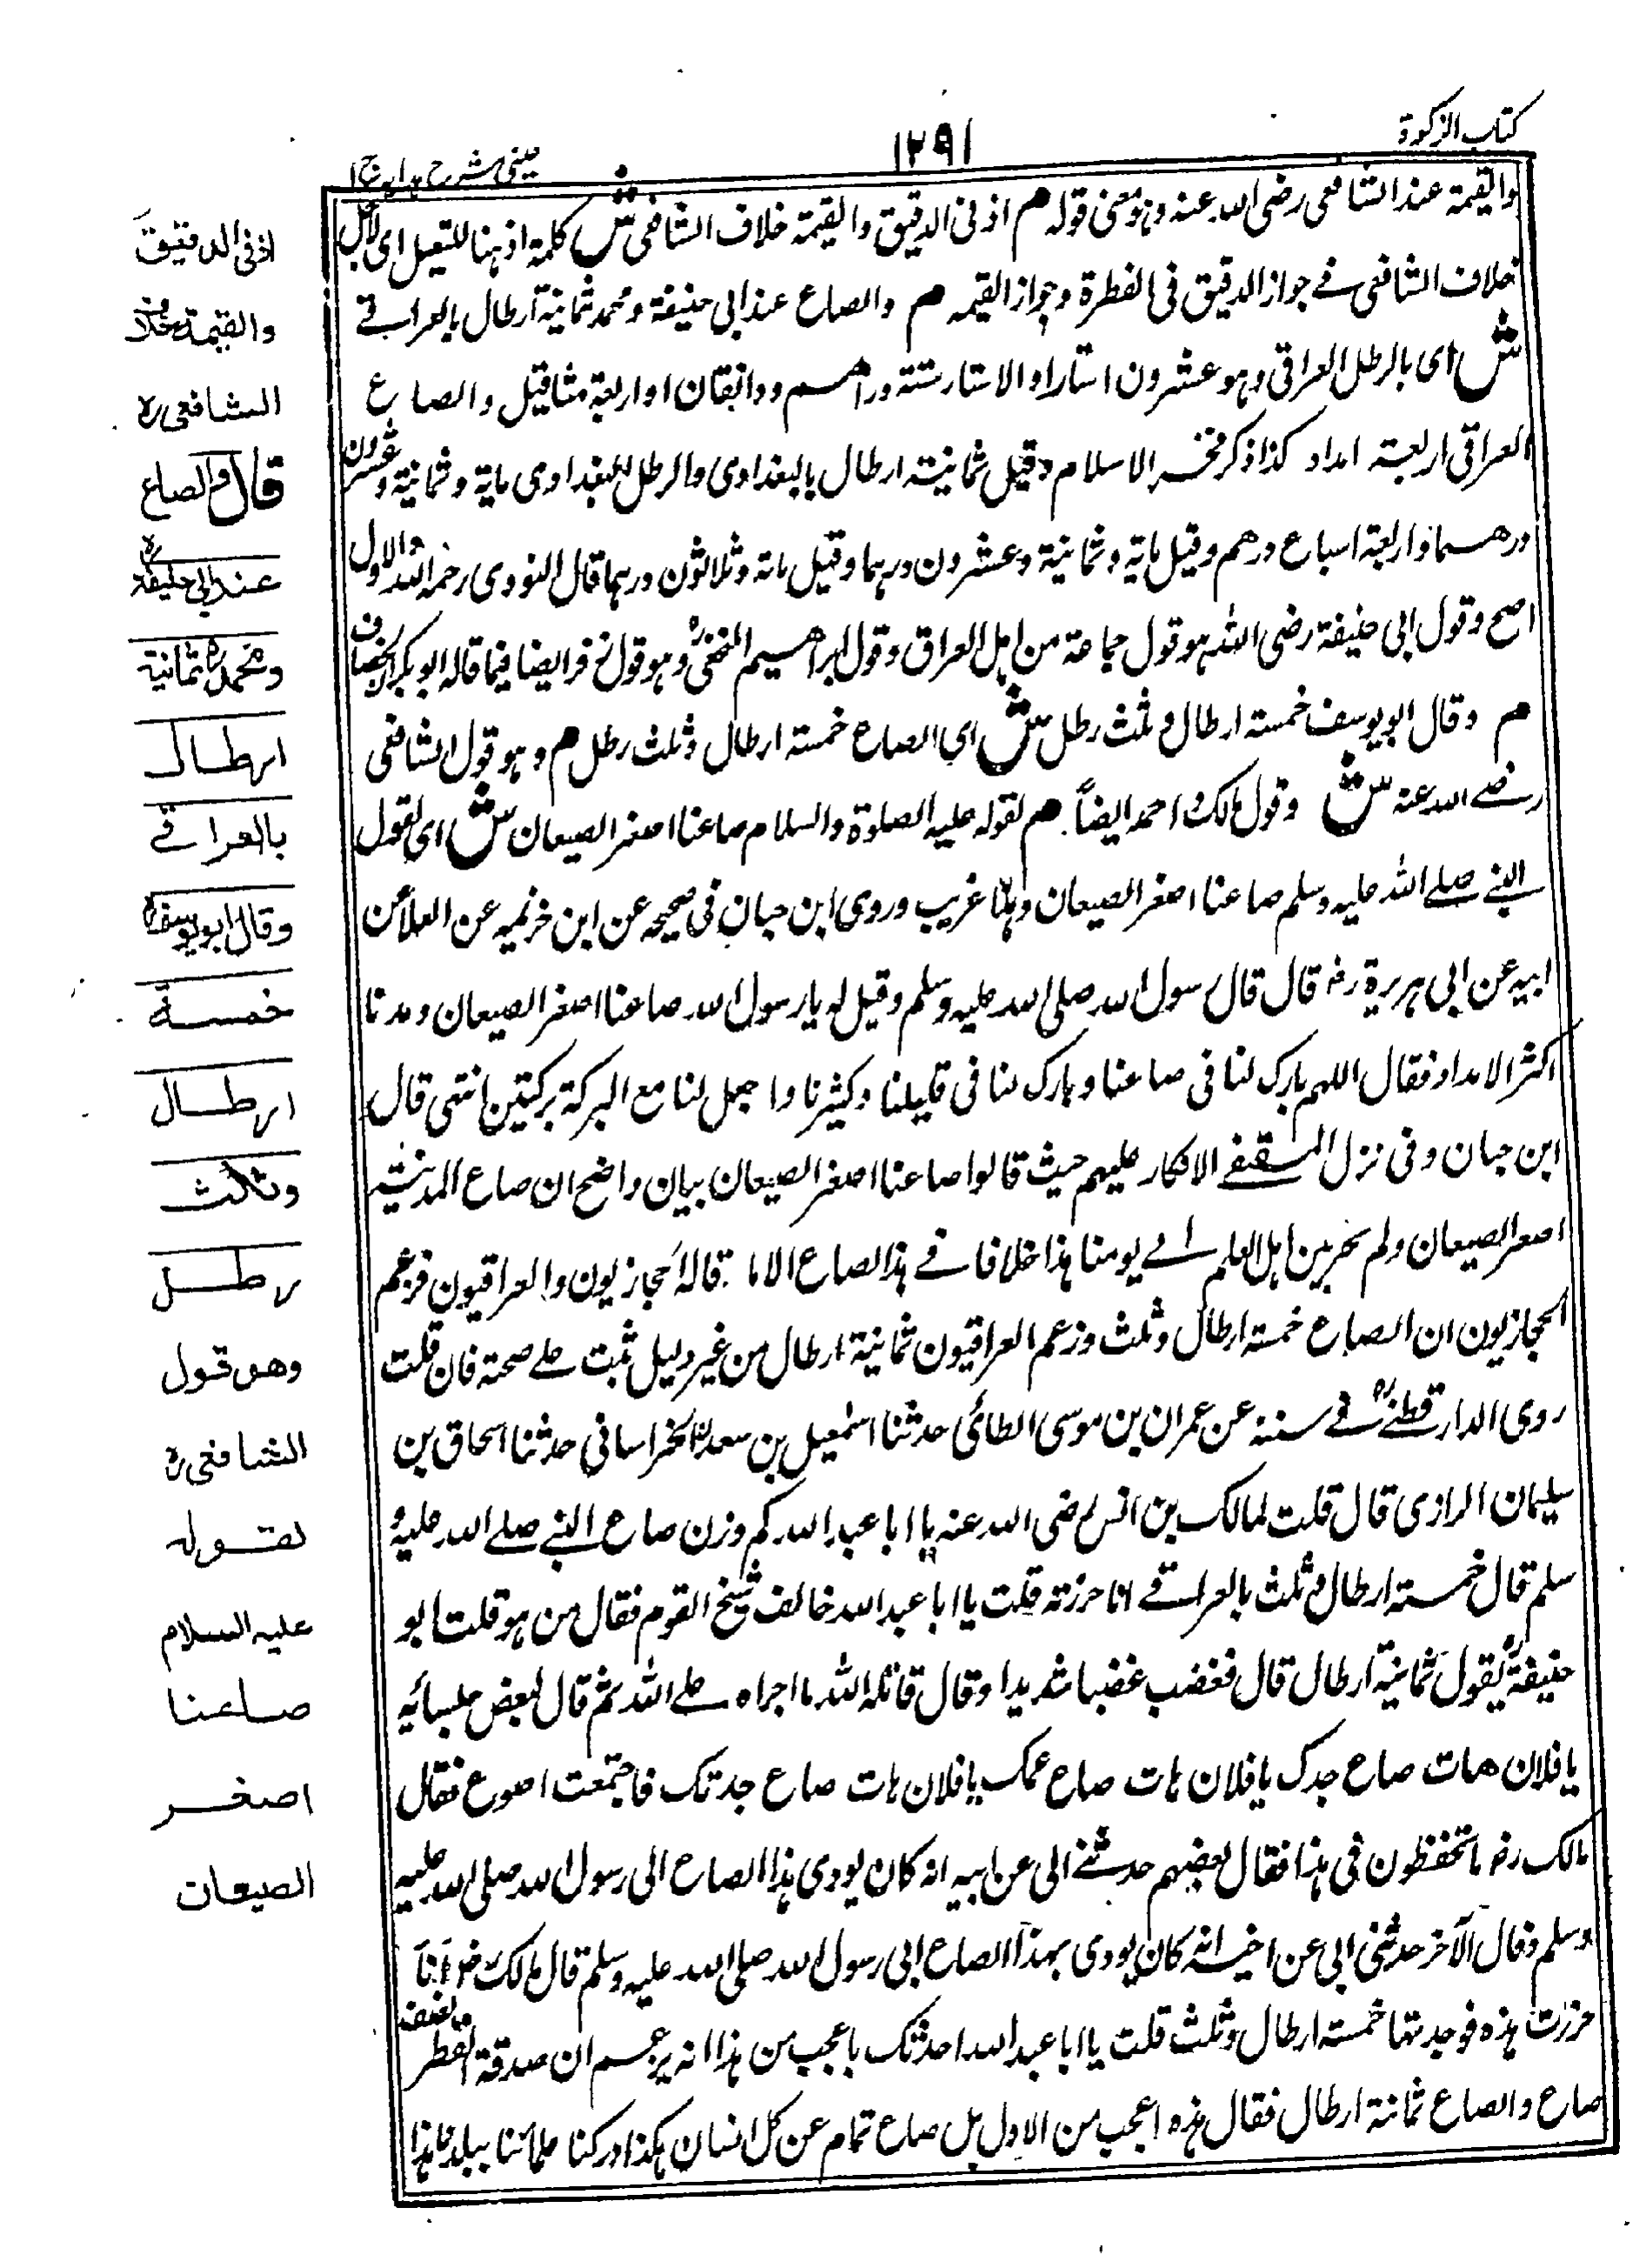 كتاب الزكوة
١٢٩١
عينى شرح هدايه ج١
والقيمة عند الشافعى رضى الله عنه وهو معنى قوله م اذ فى الدقيق والقيمة خلاف الشافعى ش كلمة اذ هنا للتعليل اى لاجل
خلاف الشافعى فى جواز الدقيق فى الفطرة وجواز القيمه م والصاع عند ابى حنيفة ومحمد ثمانية ارطال بالعراقى
ش اى بالرطل العراقى وهو عشرون استارا والاستار ستة دراهم ودانقان او اربعة مثاقيل والصاع
العراقى اربعة امداد كذا ذكر فخر الاسلام وقيل ثمانية ارطال بالبغدادى والرطل البغدادى ماية وثمانية وعشرون
درهما واربعة اسباع درهم وقيل ماية وثمانية وعشرون درهما وقيل ماتة وثلاثون درهما قال النووى رحمه الله والاول
اصح وقول ابى حنيفة رضى الله هو قول جماعة من اهل العراق وقول ابراهيم النخعى وهو قول زفر ايضا فيما قاله ابو بكر الخصاف
م وقال ابو يوسف خمسة ارطال وثلث رطل ش اى الصاع خمسة ارطال وثلث رطل م وهو قول الشافعى
رضى الله عنه ش وقول مالك واحمد ايضاً م لقوله عليه الصلوة والسلام صاعنا اصغر الصيعان ش اى لقول
النبى صلى الله عليه وسلم صاعنا اصغر الصيعان وهذا غريب وروى ابن حبان فى صحيحه عن ابن خزيمه عن العلا عن
ابيه عن ابى هريرة رض قال قال رسول الله صلى الله عليه وسلم وقيل له يا رسول الله صاعنا اصغر الصيعان ومدنا
اكثر الامداد فقال اللهم بارك لنا فى صاعنا وبارك لنا فى قليلنا وكثيرنا واجعل لنا مع البركة بركتين انتهى قال
ابن حبان وفى نزل المصطفى الانكار عليهم حيث قالوا صاعنا اصغر الصيعان بيان واضح ان صاع المدينة
اصغر الصيعان ولم نجد بين اهل العلم الى يومنا هذا خلافا فى هذا الصاع الا ما قاله الحجازيون والعراقيون فزعم
الحجازيون ان الصاع خمسة ارطال وثلث وزعم العراقيون ثمانية ارطال من غير دليل ثبت على صحته فان قلت
روى الدارقطنى فى سننه عن عمران بن موسى الطائى حدثنا اسمعيل بن سعد الخراسانى حدثنا اسحاق بن
سليمان الرازى قال قلت لمالك بن انس رضى الله عنه يا ابا عبد الله كم وزن صاع النبى صلى الله عليه و
سلم قال خمسة ارطال وثلث بالعراقى انا حزرته قلت يا ابا عبد الله خالفت شيخ القوم فقال من هو قلت ابو
حنيفة يقول ثمانية ارطال قال فغضب غضبا شديدا وقال قاتله الله ما اجراه على الله ثم قال لبعض جلسائه
يا فلان هات صاع جدك يا فلان هات صاع عمك يا فلان هات صاع جدتك فاجتمعت اصوع فقال
مالك رض ما تحفظون فى هذا فقال بعضهم حدثنى ابى عن ابيه انه كان يودى هذا الصاع الى رسول الله صلى الله عليه
وسلم وقال الآخر حدثنى ابى عن اخيه انه كان يودى بهذا الصاع الى رسول الله صلى الله عليه وسلم قال مالك رض انا
حزرت هذه فوجدتها خمسة ارطال وثلث قلت يا ابا عبد الله احدثك باعجب من هذا انه يزعم ان صدقة الفطر نصف
صاع والصاع ثمانية ارطال فقال هذه اعجب من الاول بل صاع تمام عن كل انسان هكذا ادركنا علمائنا ببلدنا هذا
اذ فى الدقيق
والقيمة خلاف
الشافعى ره
قال والصاع
عند ابى حنيفة ره
ومحمد ره ثمانية
ارطال
بالعراقى
وقال ابو يوسف ره
خمسة
ارطال
وثلث
رطل
وهو قول
الشافعى ره
لقوله
عليه السلام
صاعنا
اصغر
الصيعان